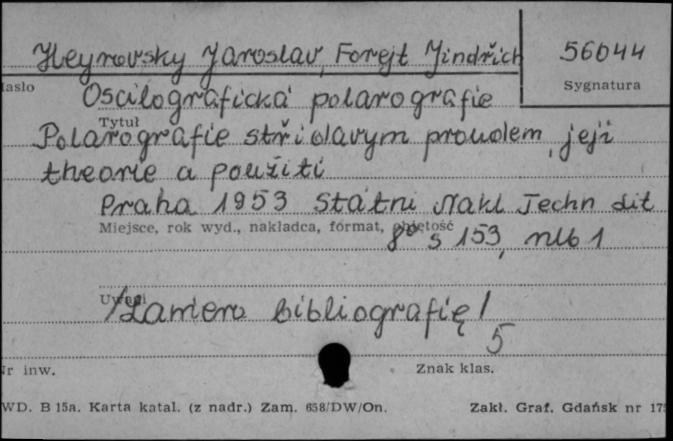 Heyrovsky Jaroslav, Forejt Jindřich
56044
asło
Sygnatura
Oscilografická polarografie
Tytuł
Polarografie střidavym proudem, jeji
theorie a použiti
Praha 1953 Státni Nakl Techn Lit
Miejsce, rok wyd., nakładca, format, objętość
8° s 153, nlb 1
Uwagi
/Zawiera bibliografię/
5
r inw.
Znak klas.
WD. B 15a. Karta katal. (z nadr.) Zam. 658/DW/On.
Zakł. Graf. Gdańsk nr 175